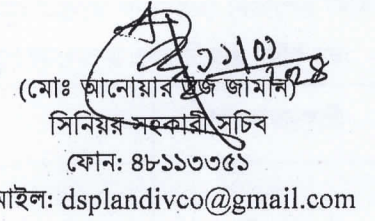 (মোঃ আনোয়ার জামান)
সিনিয়র সহকারী সচিব
ফোন: ৪৮১১৩৩৫১
মাইল: dsplandivco@gmail.com